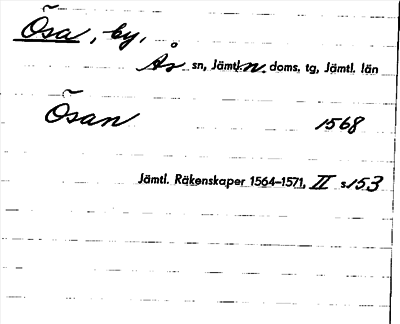 Ösa, by,
Ås sn, Jämtl. n. doms. tg, Jämtl. län
Ösan 1568
Jämtl. Räkenskaper 1564–1571, II s. 153